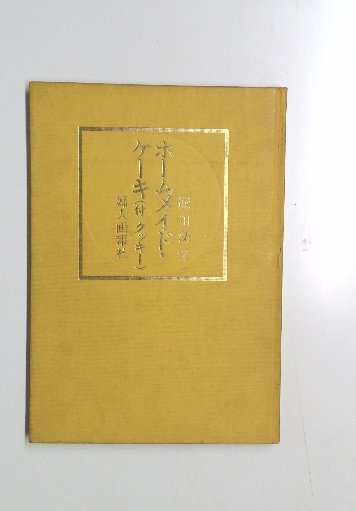 ホームメイド・
ケーキ(付 クッキー)
婦人画報社